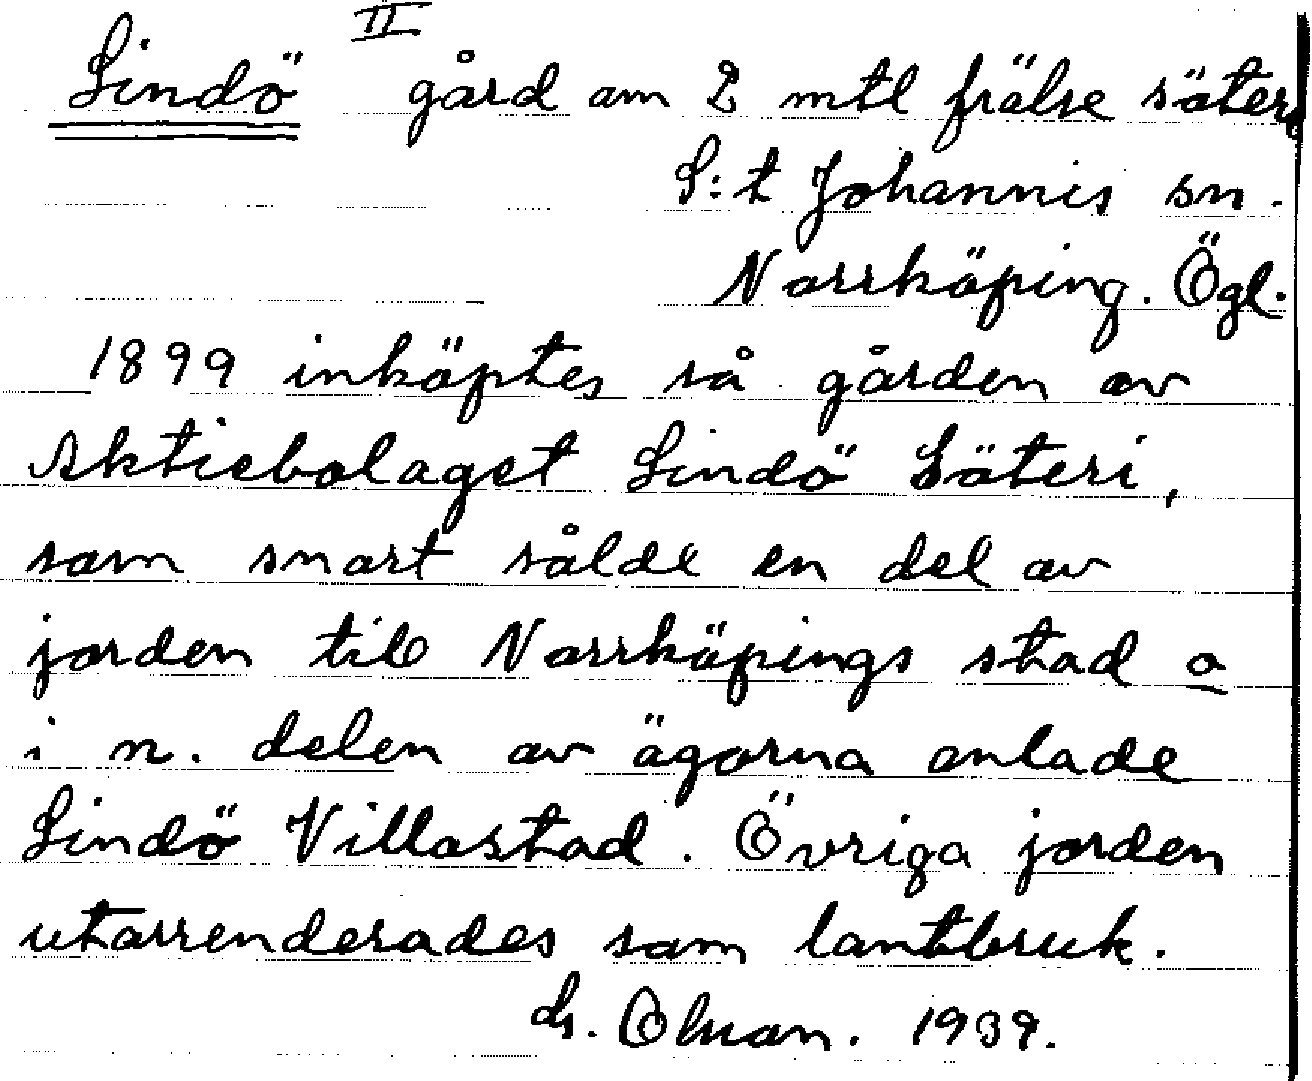 II
Lindö gård om 2 mtl frälse säteri
S:t Johannis sn.
Norrköping. Ögl.
1899 inköptes så gården av
Aktiebolaget Lindö Säteri,
som snart sålde en del av
jorden till Norrköpings stad o
i n. delen av ägorna anlade
Lindö Villastad. Övriga jorden
utarrenderades som lantbruk.
1939.